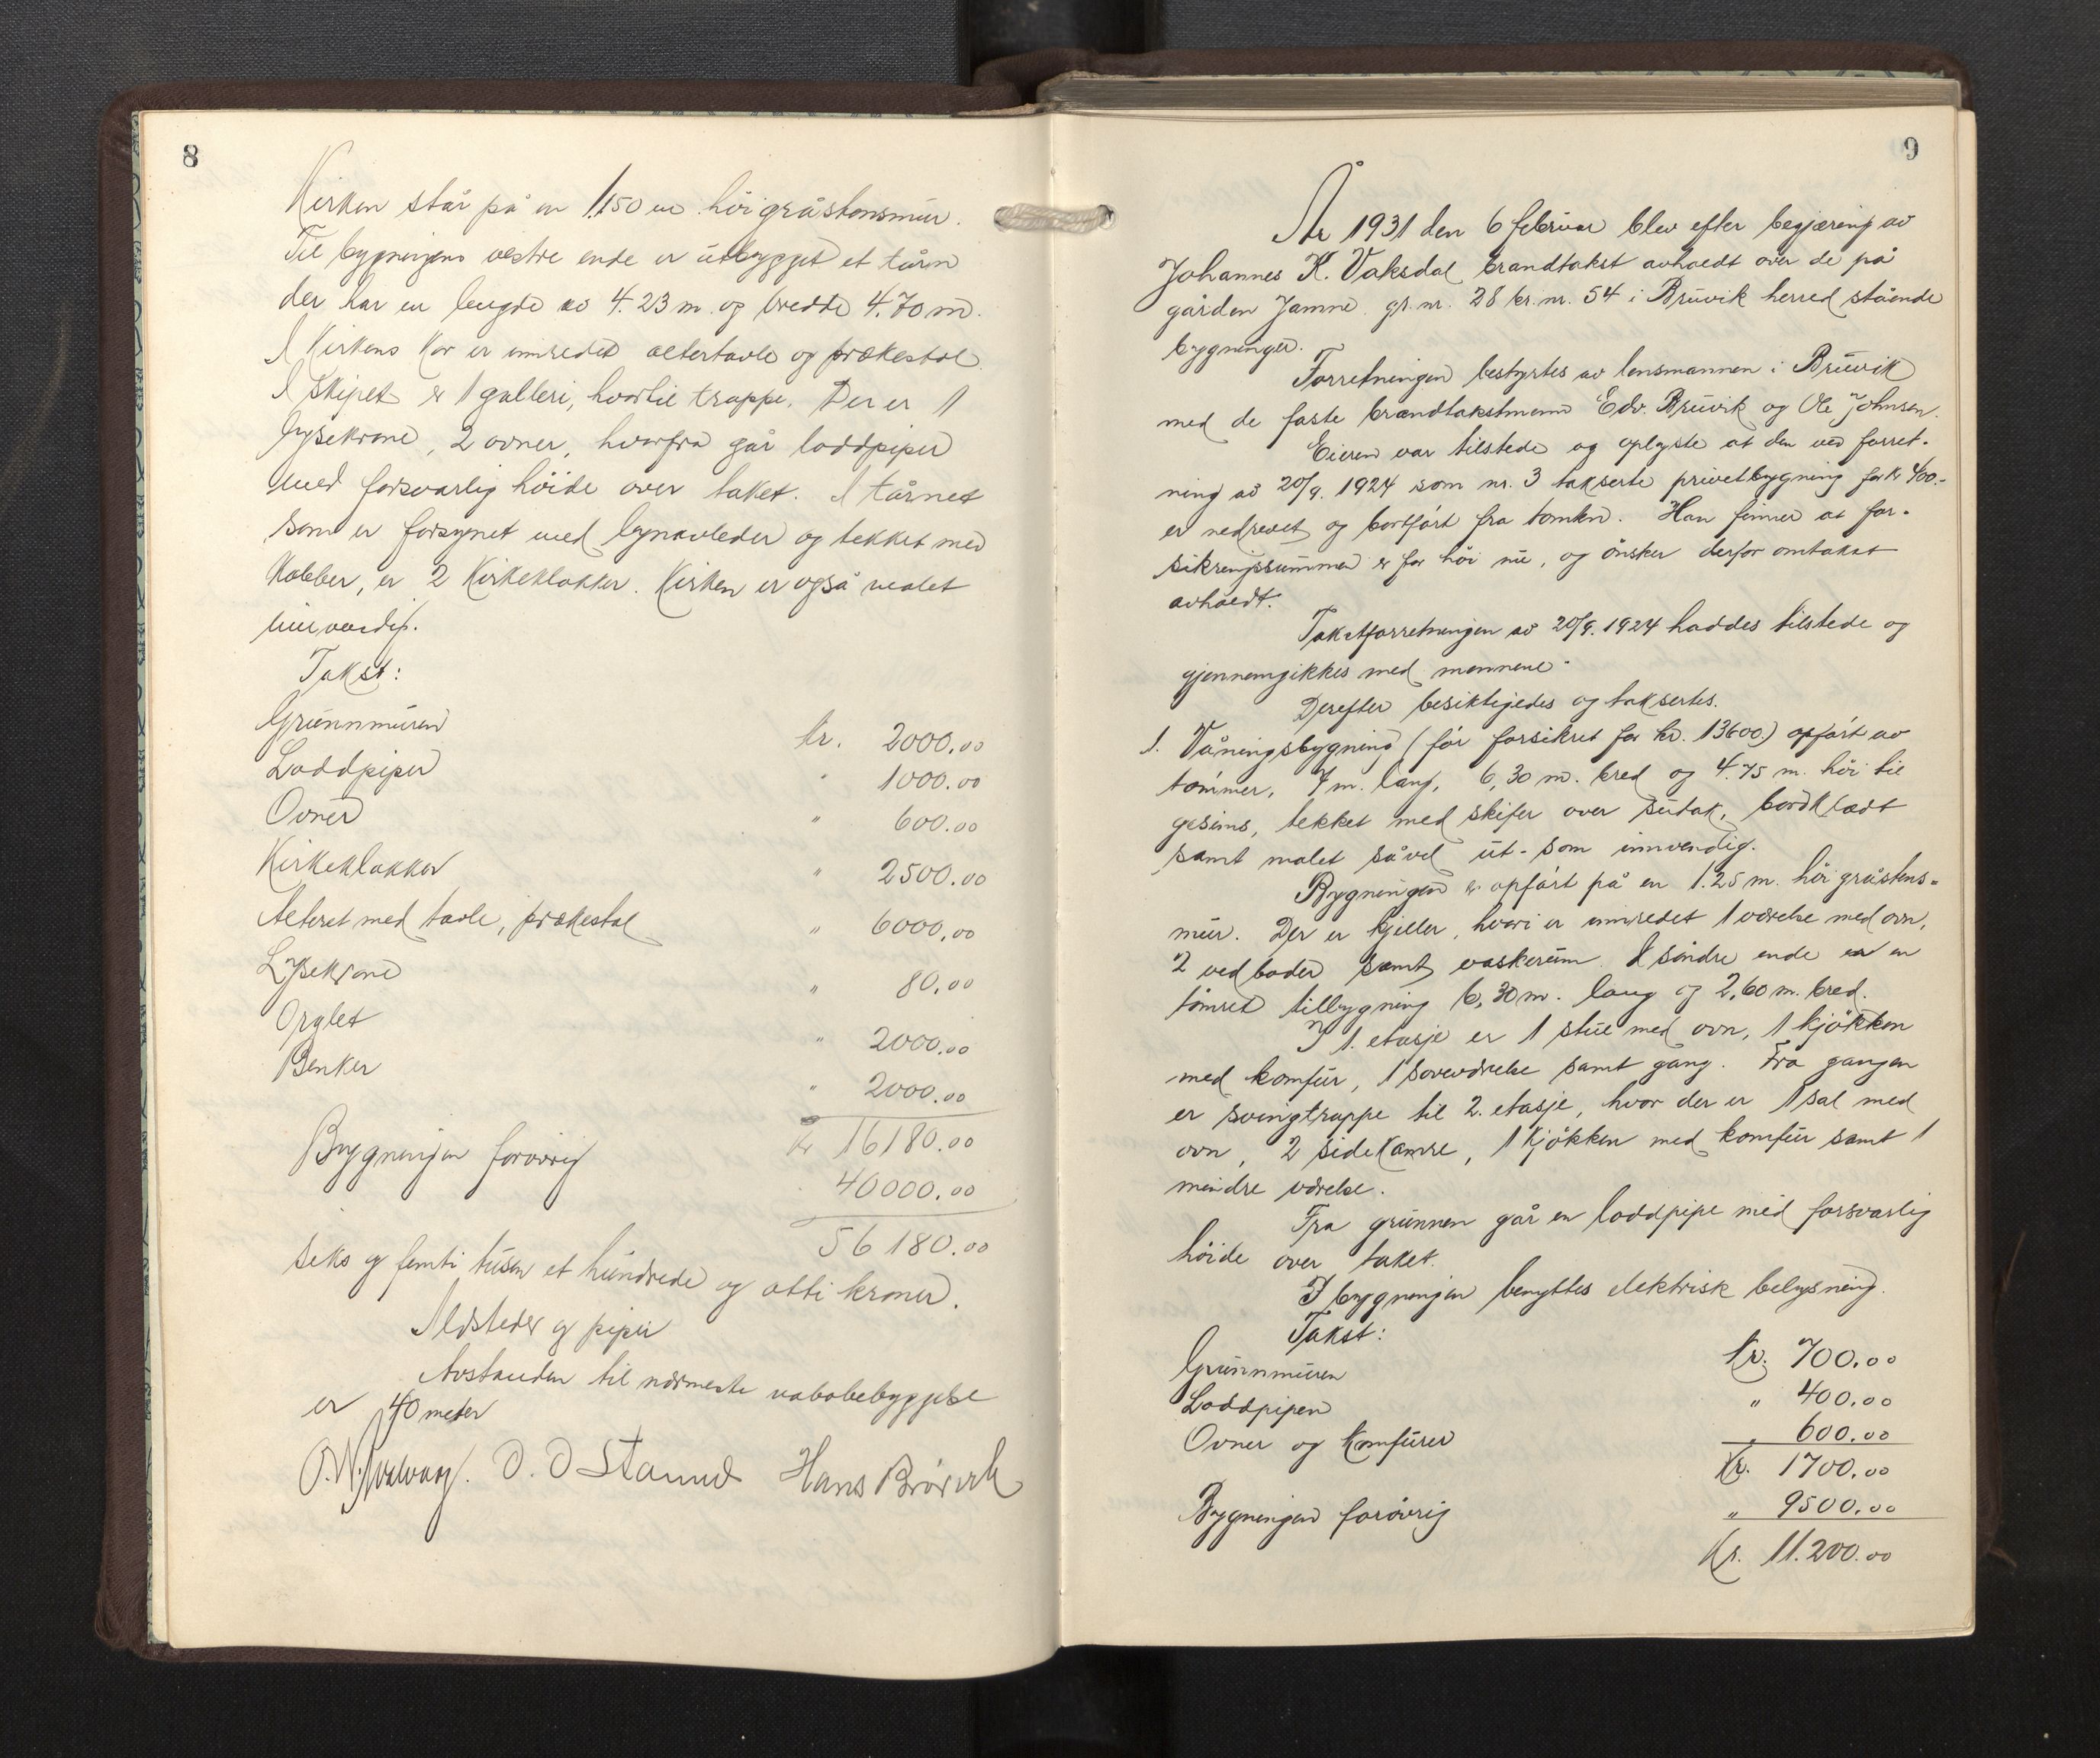 8
Kirken står på en 1,150 m höi gråstensmur.
Til bygningens vestre ende er utbygget et tårn
der har en lengde av 4.23 m. og bredde 4.70 m.
I Kirkens Kor er innredet altertavle og prækestol.
I Skipet er 1 galleri, hvortil trappe. Der er 1
lysekrone, 2 ovner, hvorfra går loddpiper
med forsvarlig höide over taket. I tårnet
som er forsynet med lynavleder og tekket med
Kobber, er 2 Kirkeklokker. Kirken er også malet
innvendig.
Takst:
Grunnmuren kr. 2000.00
Loddpiper " 1000.00
Ovner " 600.00
Kirkeklokker " 2500.00
Alteret med tavle, prækestol " 6000.00
Lysekrone " 80.00
Orglet " 2000.00
Benker " 2000.00
Kr 16180.00
Bygningen forövrig 40000.00
56180.00
Seks og femti tusen et hundrede og otti kroner.
Ildsteder og piper
Avstanden til nærmeste nabobebyggelse
er 40 meter
Hans Brövik
9
År 1931 den 6 februar blev efter begjæring av
Johannes K. Vaksdal brandtakst avholdt over de på
gården Jamne gr. nr. 28 br. nr. 54 i Bruvik herred stående
bygninger.
Forretningen bestyrtes av lensmannen i Bruvik
med de faste brandtakstmenn Edv. Bruvik og Ole Johnsen.
Eieren var tilstede og oplyste at den ved forret-
ning av 20/9. 1924 som nr. 3 takserte privetbygning for kr 400.-
er nedrevet og bortfört fra tomten. Han finner at for-
sikringssummen er for höi nu, og önsker derfor omtakst
avholdt.
Takstforretningen av 20/9. 1924 haddes tilstede og
gjennemgikkes med mennene.
Derefter besiktigedes og taksertes.
1. Våningsbygning (för forsikret for kr. 13600.) opfört av
tömmer, 7 m. lang, 6,30 m. bred og 4.75 m. höi til
gesims, tekket med skifer over sutak, bordklædt
samt malet såvel ut- som innvendig.
Bygningen er opfört på en 1.25 m. höi gråstens-
mur. Der er kjeller, hvori er innredet 1 værelse med ovn,
2 vedboder samt vaskerum. I söndre ende er en
tömret tilbygning 6,30 m. lang og 2,60 m. bred.
I 1. etasje er 1 stue med ovn, 1 kjökken
med komfur, 1 soveværelse samt gang. Fra gangen
er svingtrappe til 2. etasje, hvor der er 1 sal med
ovn, 2 sidekamre, 1 kjökken med komfur samt 1
mindre værelse.
Fra grunnen går en loddpipe med forsvarlig
höide over taket.
I bygningen benyttes elektrisk belysning.
Takst:
Grunnmuren Kr. 700.00
Loddpipen " 400.00
Ovner og Komfurer " 600.00
Kr. 1700.00
Bygningen forövrig " 9500.00
Kr. 11.200.00